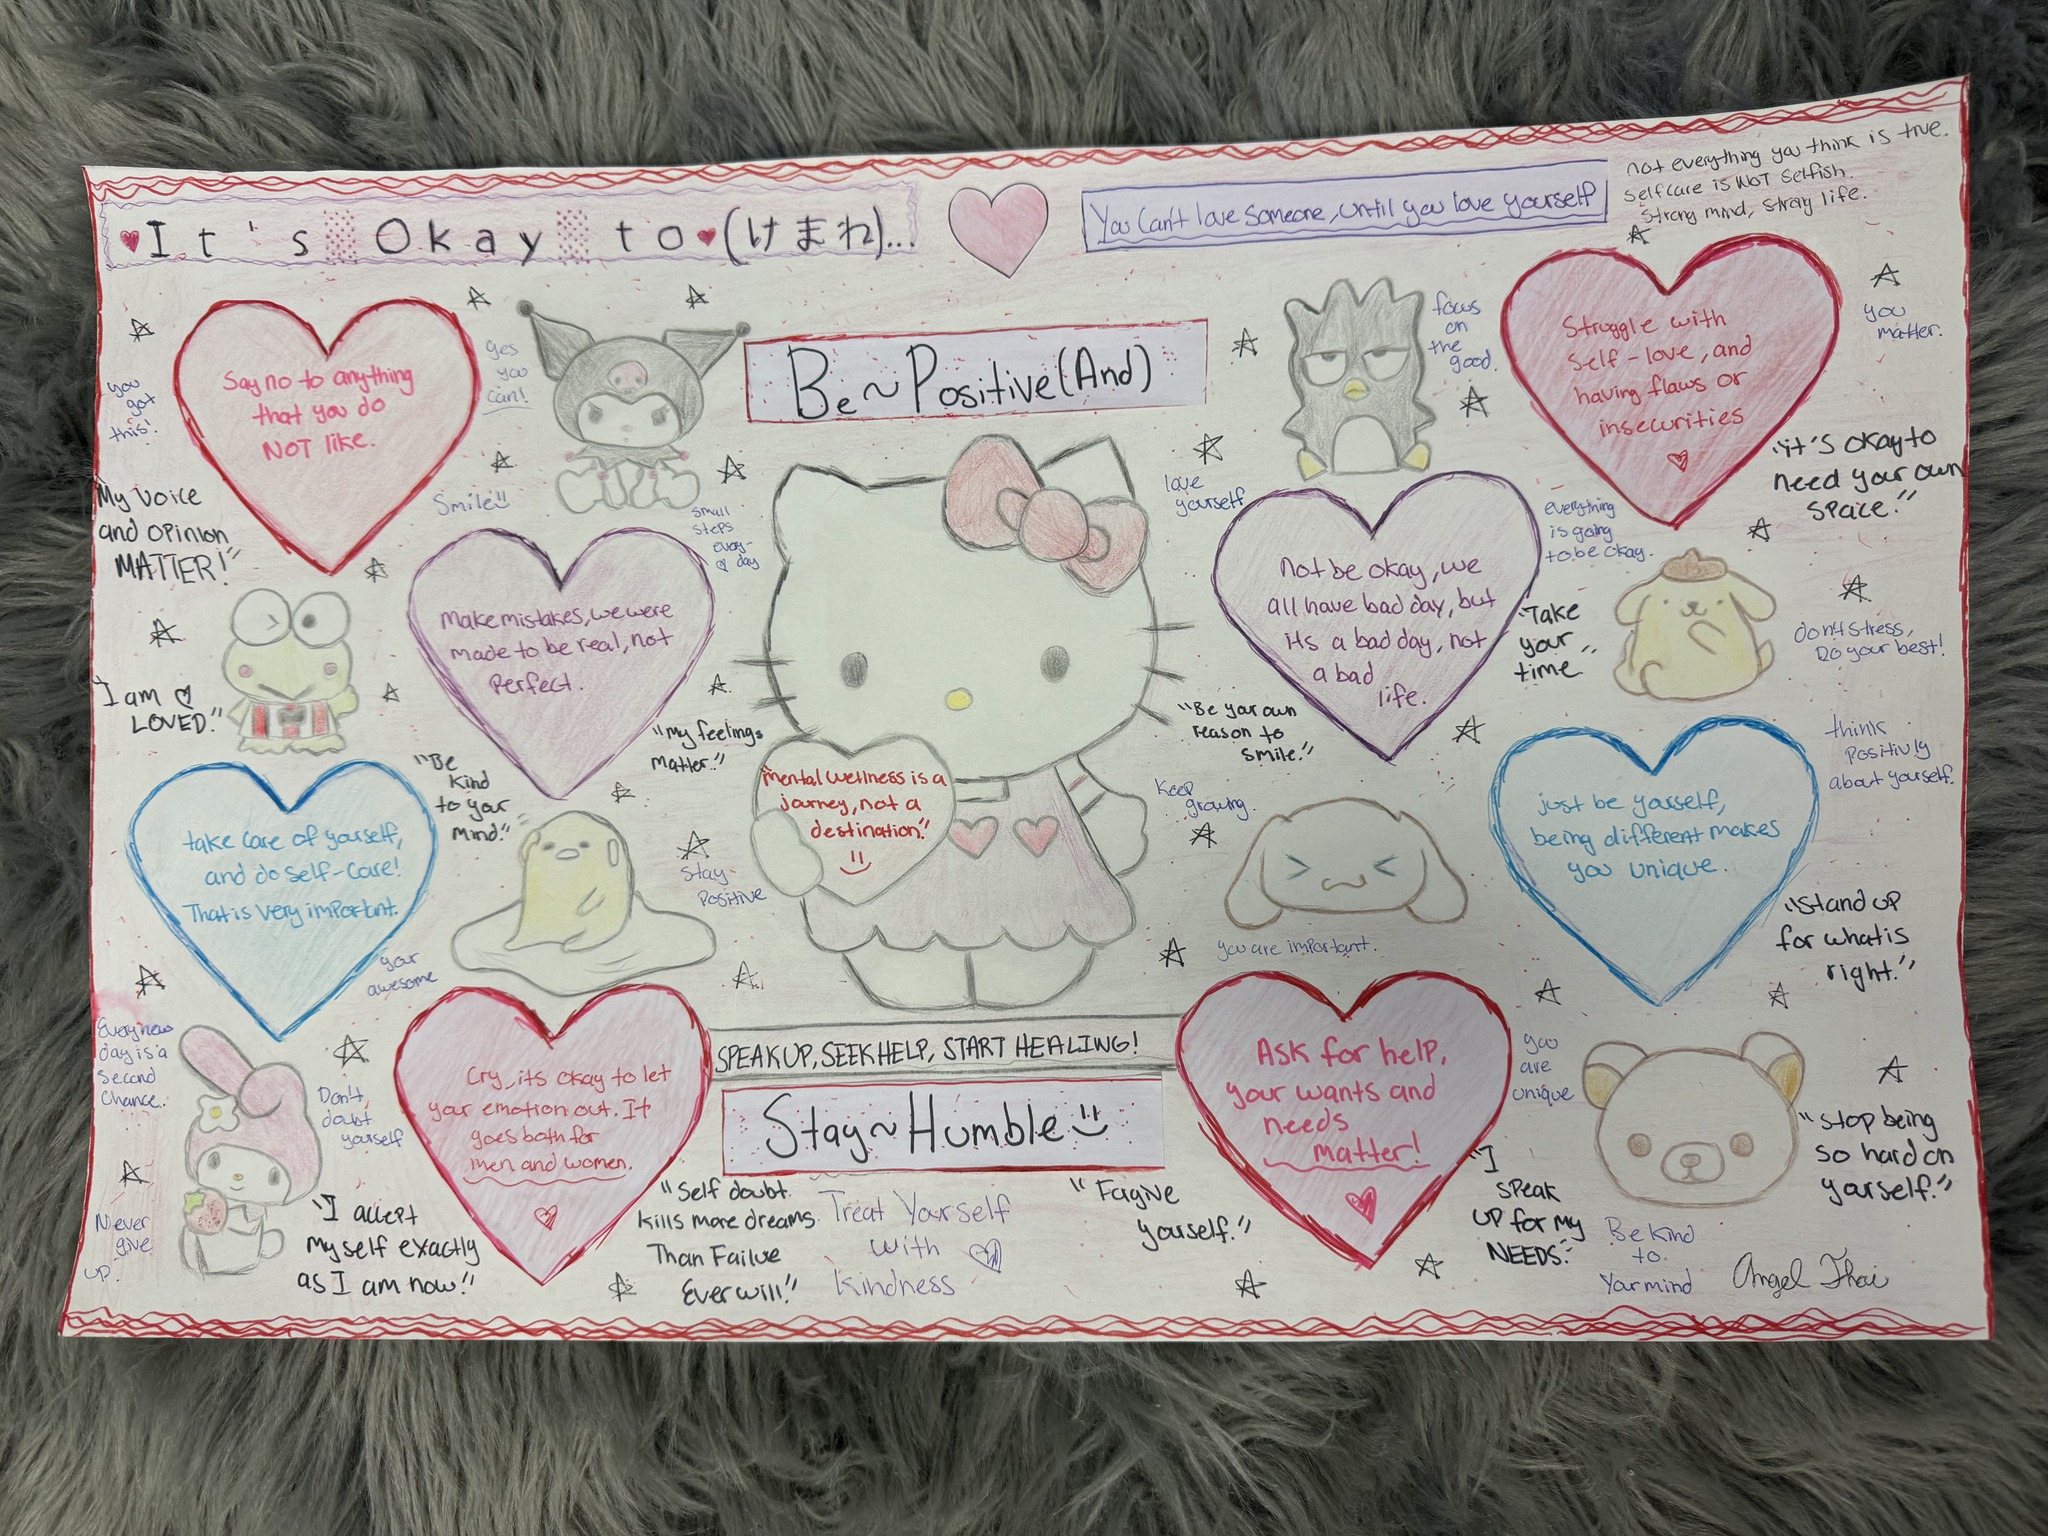 It's Okay to (けまれ)...
You Can't love someone, until you love yourself
not everything you think is true.
selfcare is NOT selfish.
strong mind, strong life.
you
got
this!
Say no to anything
that you do
NOT like.
yes
you
can!
Be~Positive (And)
focus
on
the
good.
Struggle with
self-love, and
having flaws or
insecurities
you
matter.
"My voice
and opinion
MATTER!"
Smile
small
steps
every-
day
love
yourself
everything
is going
to be okay.
"it's okay to
need your own
space."
"I am
LOVED."
Make mistakes, we were
made to be real, not
perfect.
"My feelings
matter."
Not be okay, we
all have bad day, but
its a bad day, not
a bad
life.
"Be your own
reason to
smile."
"Take
your
time"
don't stress,
Do your best!
think
positivly
about yourself.
"Be
kind
to your
mind."
take care of yourself,
and do self-care!
That is very important.
your
awesome
stay
positive
mental wellness is a
journey, not a
destination."
Keep
growing.
you are important.
just be yourself,
being different makes
you unique.
"Stand up
for what is
right."
Every new
day is a
second
chance.
Don't,
doubt
yourself
Never
give
up.
"I accept
myself exactly
as I am now!"
Cry, its okay to let
your emotion out. It
goes both for
men and women.
SPEAK UP, SEEK HELP, START HEALING!
Stay~Humble
"Self doubt
kills more dreams
Than Failure
Ever will!"
Treat Yourself
with
kindness
"Forgive
yourself."
Ask for help,
your wants and
needs
matter!
"I
speak
up for my
NEEDS."
you
are
unique
"Stop being
so hard on
yourself."
Be kind
to
Your mind
Angel Thai